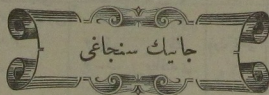 جانيك سنجاغى